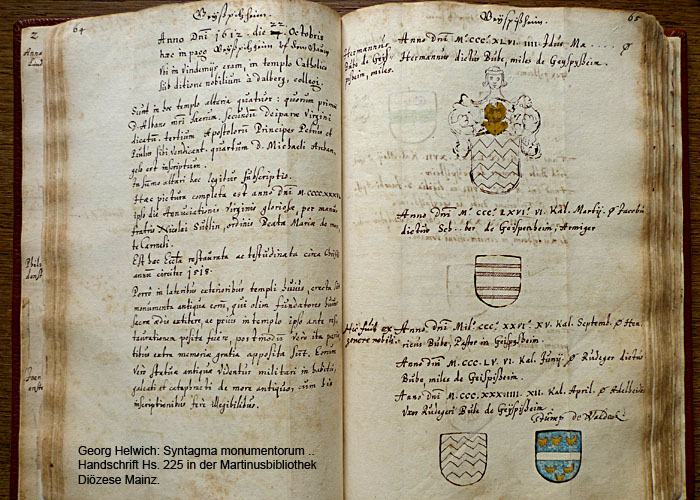 2
64
Geÿspizheim.
Anno
Anno Dñi 1612. die 22. Octobris
hac in pago Geÿspizheim
in vindemijs eram, in templo Catholico
sub ditione nobilium à Dalberg, collegi.
Sunt in hoc templo altaria quatuor: quorum primum
D. Albano secundum Deiparæ Virgini
dicatum. tertium Apostolorum Principes Petrus et
Paulus sibi vendicant. quartum D. Michaeli Archan-
gelo est inscriptum.
In summo altari hæc legitur subscriptio.
Hæc pictura completa est anno dñi M.CCCC.XXXX
ipso die Annuntiationis virginis gloriosæ, per manus
fratris Nicolai ordinis Beatæ Mariæ de mon-
te Carmeli.
Est hæc Eccłia restaurata ac testudinata circa Christi
annum circiter 1518.
Porrò in lateribus exterioribus templi huius, erecta sunt
monumenta antiqua eorum, qui olim fundatores huius
sacræ ædis extitere, ac prius in templo ipso ante resta-
urationem posita fuere, postmodum vero ita
extra memoriæ gratia apposita sunt. Eorum
vero statuæ antiquæ videntur militari in habitu,
galeati et cataphracti de more antiquo, cum his
inscriptionibus fere illegibilibus.
Geÿspizheim.
65
Hermannus
Bube de Geÿs-
pizheim, miles.
Anno Dñi M.CCC.XLVI. IIII. Idus Ma .... Ø
Hermannus dictus Bube, miles de Geÿspizheim.
Anno Dñi M.CCC.LXVI. VI. Kal. Martij. Ø Jacobus
dictus de Geispizheim, Armiger
Hic fuit ex
genere nobili.
Anno Dñi Mil. CCC. XXVI. XV. Kal. Septemb. Ø Hen-
ricus Bube, Pastor in Geÿspizheim.
Anno Dñi M.CCC.LV. VI. Kal. Junij. Ø Rudeger dictus
Bube, miles de Geispizheim.
Anno Dñi M.CCC.XXXIIII. XII. Kal. April. Ø Adelheid
Uxor Rudegeri Bube de Geÿspizheim.
de Waldeck
Georg Helwich: Syntagma monumentorum ..
Handschrift Hs. 225 in der Martinusbibliothek
Diözese Mainz.